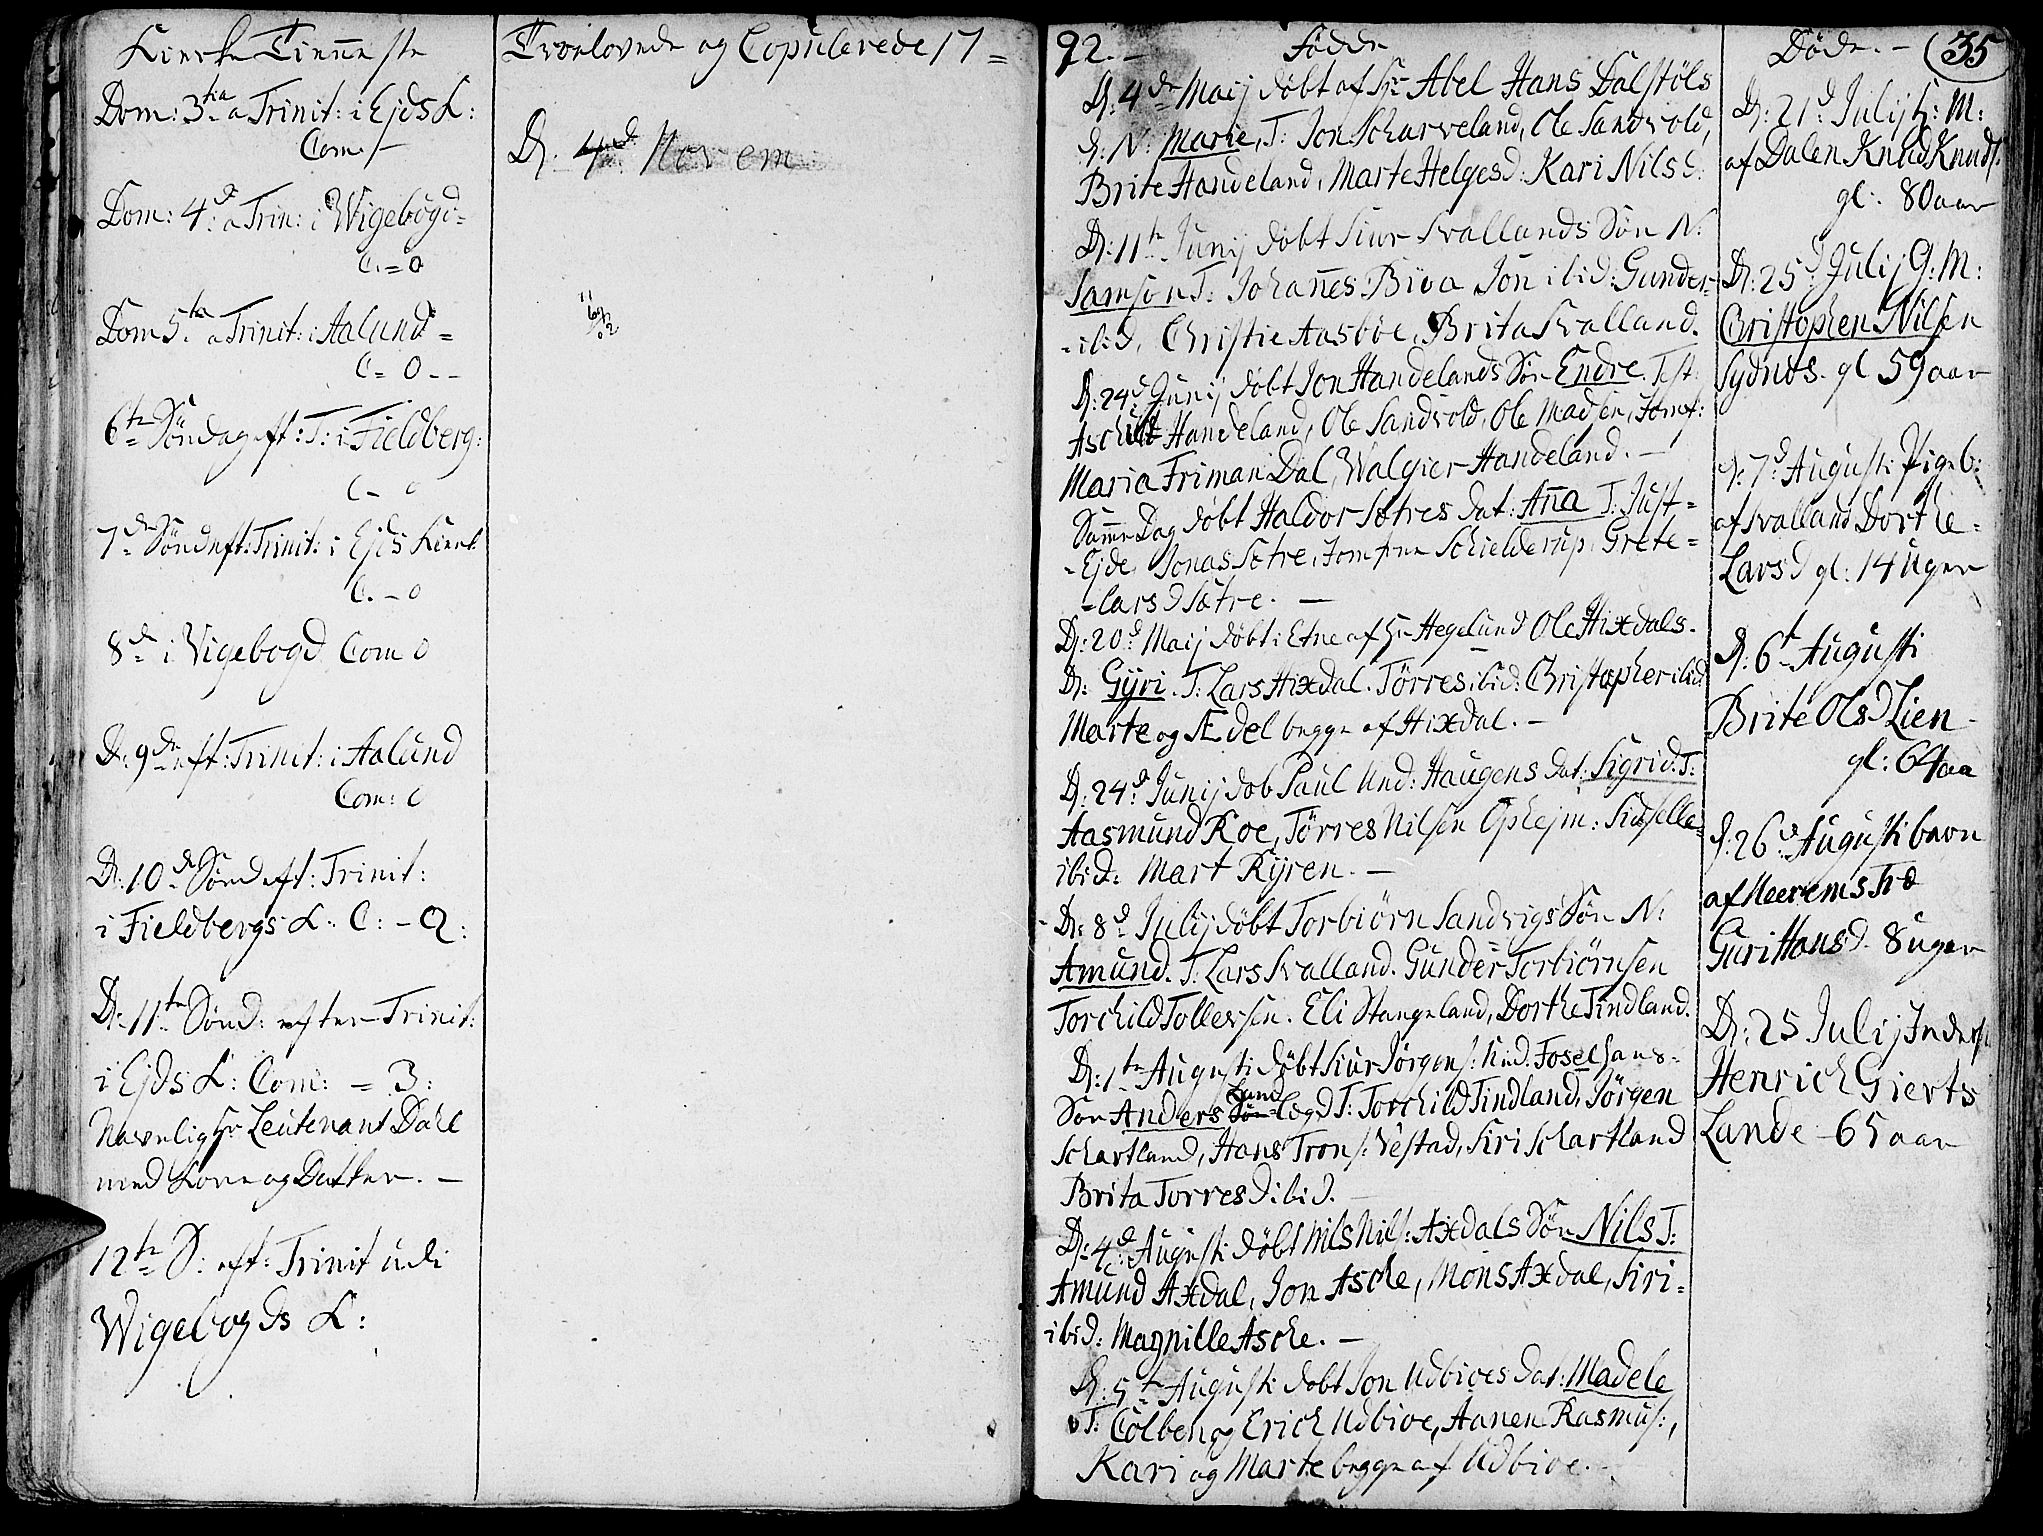 Kirke Tienneste
Dom: 3tia a Trinit: i Ejds K:
Com: /-
Dom: 4d: a Trin: i Wigebögd=
C. = 0
Dom 5ta a Trinit: i Aalund =
C = 0 - -
6te Söndag eft: T: i Fieldberg:
C - 0
7de Sönd eft: Trinit: i Ejds Kirke
C. - 0
8de i Wigebogd Com 0
D: 9de eft: Trinit: i Aalund
Com: 0
D: 10de Sönd eft: Trinit:
i Fieldbergs K: C: - 2:
D: 11te Sönd: efter Trinit:
i Ejds K: Com: = 3:
Navnlig Hr Leutenant Dahl
med Kone og Datter. -
12te S: eft: Trinit udi
Wigebogds K:
Trolovede og Copulerede 17=
D: 4d: Novem
92. - Födde
D: 4de Maij döbt af Hr Abel Hans Dalstöls
D: N: Marie, T: Jon Scharveland, Ole Sandvold,
Brite Handeland, Marte Helgesd: Kari Nilsd:
D: 11te Junij döbt Siur Svallands Sön N:
Samson T: Johannes Biva Jon ibid: Gunder-
- ibid, Christie Aasböe, Brita Svalland.
D: 24d Junij döbt Jon Handelands Sön Endre. Test:
Aschild Handeland, Ole Sandvold, Ole Madsen, Jomf:
Maria Friman Dal, Walgier Handeland. -
Samme Dag döbt Haldor Sætres Dat: Anna T: Just-
- Ejde, Jonas Sætre, Jomfrue Schielderup, Grete =
- Larsd Sætre. -
D: 20d Maij döbt i Etne af Hr Hegelund Ole Hixdals.
D: Gyri. T: Lars Hixdal. Törres ibid: Christopher ibid:
Marte og Ædel begge af Hixdal. -
D: 24d: Junij döb Paul Und: Haugens Dat: Sigrid: T:
Aasmund Roe, Törres Nilsen Ophejm: Sidselle
ibid: Mart Ryren. -
D: 8d Julij döbt Torbiörn Sandvigs Sön N:
Amund. T: Lars Svalland. Gunder Torbiörnsen
Torchild Tollevsen. Eli Stangeland, Dorthe Tindland.
D: 1te Augusti döbt Siur Jörgens: Und. Fosel
Sön Anders Lund Lægd T: Torchild Tindland, Jörgen
Schartland, Hans Trons: Vestad, Siri Schartland
Brita Torresd ibid. -
D: 4d: Augusti döbt Nils Nils: Axdals Sön Nils T:
Amund Axdal, Jon Asche, Mons Axdal, Siri-
ibid: Magnille Asche. -
D: 5te Augusti döbt Jon Udbioes Dat: Madele
T: Colben og Erich Udbioe, Aanen Rasmus:,
Kari og Marte begge af Udbioe. -
Döde. - 35
D: 21d Julij G: M:
af Dalen Knud Knuds.
gl: 80 aar
D: 25d Julij G: M:
Christopher Nilsen
Sydnes. gl 59 aar
D: 7d Augusti Pigeb:
af Svalland Dorthe =
Larsd gl: 14 Uger
D: 6t Augusti
Brite Olsd Lien -
gl: 64 aa
D: 26d Augusti barn
af Meerems Træ
Guri Hansd. 8 uger
D: 25 Julij Inders:
Henrich Gierts
Lande - 65 aar